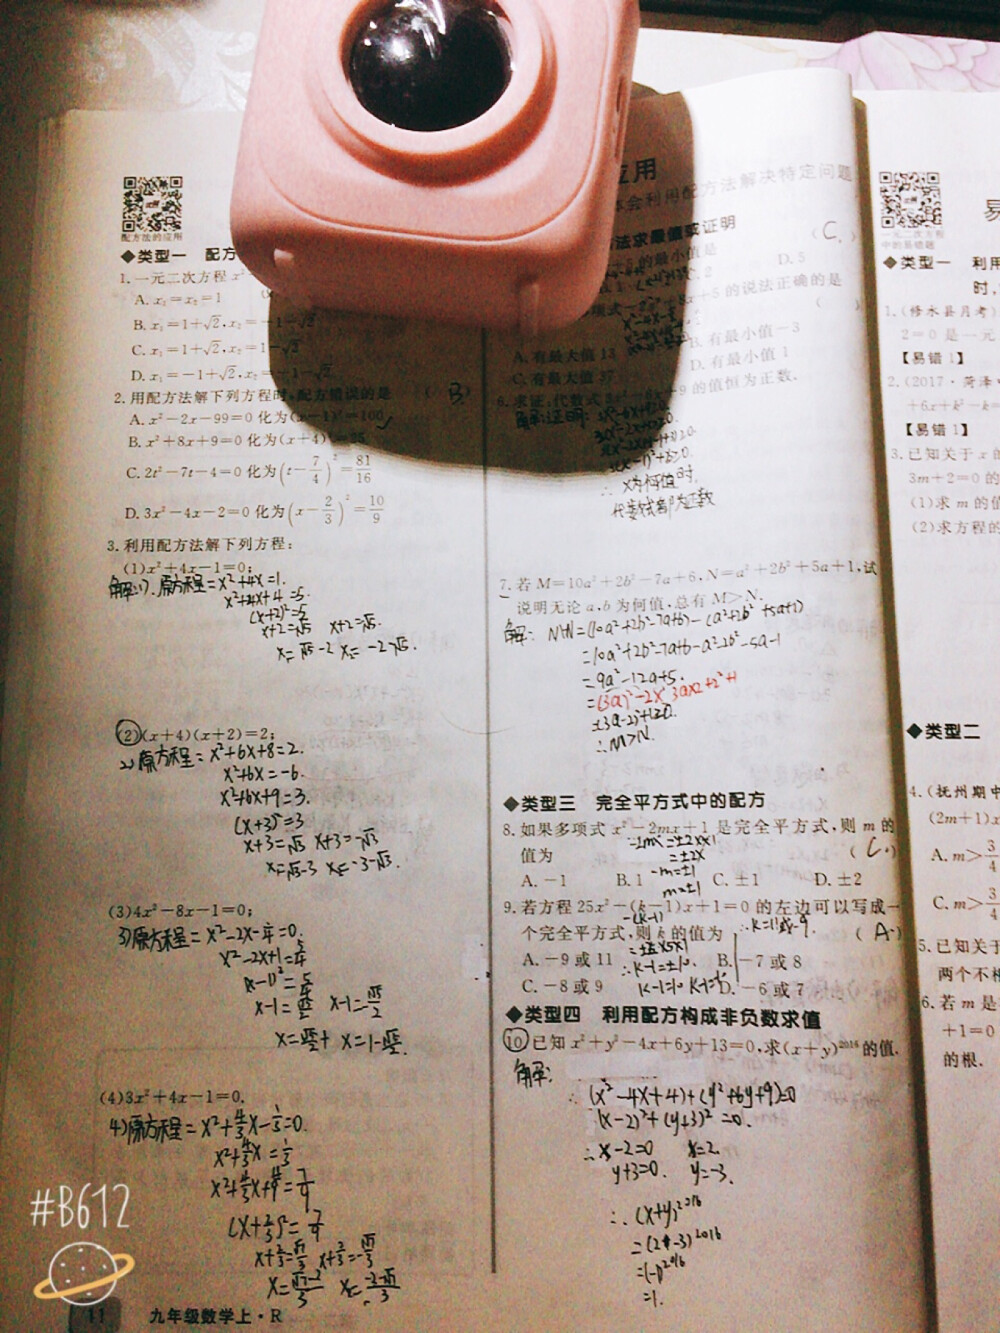 配方法的应用
◆类型一 配方
1.一元二次方程 x²
A. x₁=x₂=1
B. x₁=1+√2,x₂=-1-√2
C. x₁=1+√2,x₂=1-√2
D. x₁=-1+√2,x₂=-1-√2
2.用配方法解下列方程时,配方错误的是 ( B )
A. x²-2x-99=0 化为(x-1)²=100
B. x²+8x+9=0 化为(x+4)²=25
C. 2t²-7t-4=0 化为(t-7/4)²=81/16
D. 3x²-4x-2=0 化为(x-2/3)²=10/9
3.利用配方法解下列方程:
(1)x²+4x-1=0;
解:(1).原方程=x²+4x=1.
x²+4x+4=5.
(x+2)²=5
x+2=√5 x+2=-√5.
x=√5-2 x₂=-2-√5.
(2)(x+4)(x+2)=2;
2)原方程=x²+6x+8=2.
x²+6x=-6.
x²+6x+9=3.
(x+3)²=3
x+3=√3 x+3=-√3
x=√3-3 x=-3-√3.
(3)4x²-8x-1=0;
3)原方程=x²-2x-1/4=0.
x²-2x+1=5/4
(x-1)²=5/4
x-1=√5/2 x-1=-√5/2
x=√5/2+1 x=1-√5/2.
(4)3x²+4x-1=0.
4)原方程=x²+4/3x-1/3=0.
x²+4/3x=1/3
x²+4/3x+4/9=7/9
(x+2/3)²=7/9
x+2/3=√7/3 x+2/3=-√7/3
x=√7-2/3 x=-2-√7/3
#B612
11 九年级数学上·R
应用
体会利用配方法解决特定问题
法求最值或证明
的最小值是 ( C )
C.2 D.5
+8x+5 的说法正确的是
( )
A.有最大值 13 B.有最小值-3
C.有最大值 37 D.有最小值 1
6.求证:代数式 3x²-6x+9 的值恒为正数.
解:证明:3x²-6x+9>0.
∴x为何值时.
代数式都为正数
7.若 M=10a²+2b²-7a+6,N=a²+2b²+5a+1,试
说明无论 a,b 为何值,总有 M>N.
解: M-N=(10a²+2b²-7a+6)-(a²+2b²+5a+1)
=10a²+2b²-7a+6-a²-2b²-5a-1
=9a²-12a+5.
=(3a)²-2×3a×2+2²+1
=(3a-2)²+1≥0.
∴M>N.
◆类型三 完全平方式中的配方
8.如果多项式 x²-2mx+1 是完全平方式,则 m 的
-2mx=±2×x×1
值为 ( C )
=±2x
-m=±1
A.-1 B.1 C.±1 D.±2
m=±1
9.若方程 25x²-(k-1)x+1=0 的左边可以写成一
-(k-1) ∴k=11或-9.
个完全平方式,则 k 的值为 ( A )
=±2×5×1
A.-9 或 11 B.-7 或 8
∴k-1=±10.
C.-8 或 9 D.-6 或 7
k-1=10 k-1=-10
◆类型四 利用配方构成非负数求值
10.已知 x²+y²-4x+6y+13=0,求(x+y)²⁰¹⁶的值.
解:
∴(x²-4x+4)+(y²+6y+9)=0
(x-2)²+(y+3)²=0.
∴x-2=0 x=2.
y+3=0. y=-3.
∴(x+y)²⁰¹⁶
=(2+-3)²⁰¹⁶
=(-1)²⁰¹⁶
=1.
易
一元二次方程
中的易错题
◆类型一 利用
时,
1.(修水县月考)
2=0 是一元
【易错 1】
2.(2017·菏泽
+6x+k²-k=
【易错 1】
3.已知关于 x 的
3m+2=0 的
(1)求 m 的值
(2)求方程的
◆类型二
4.(抚州期中
(2m+1)x
A. m>3/4
C. m>3/4
5.已知关于
两个不相
6.若 m 是
+1=0
的根.